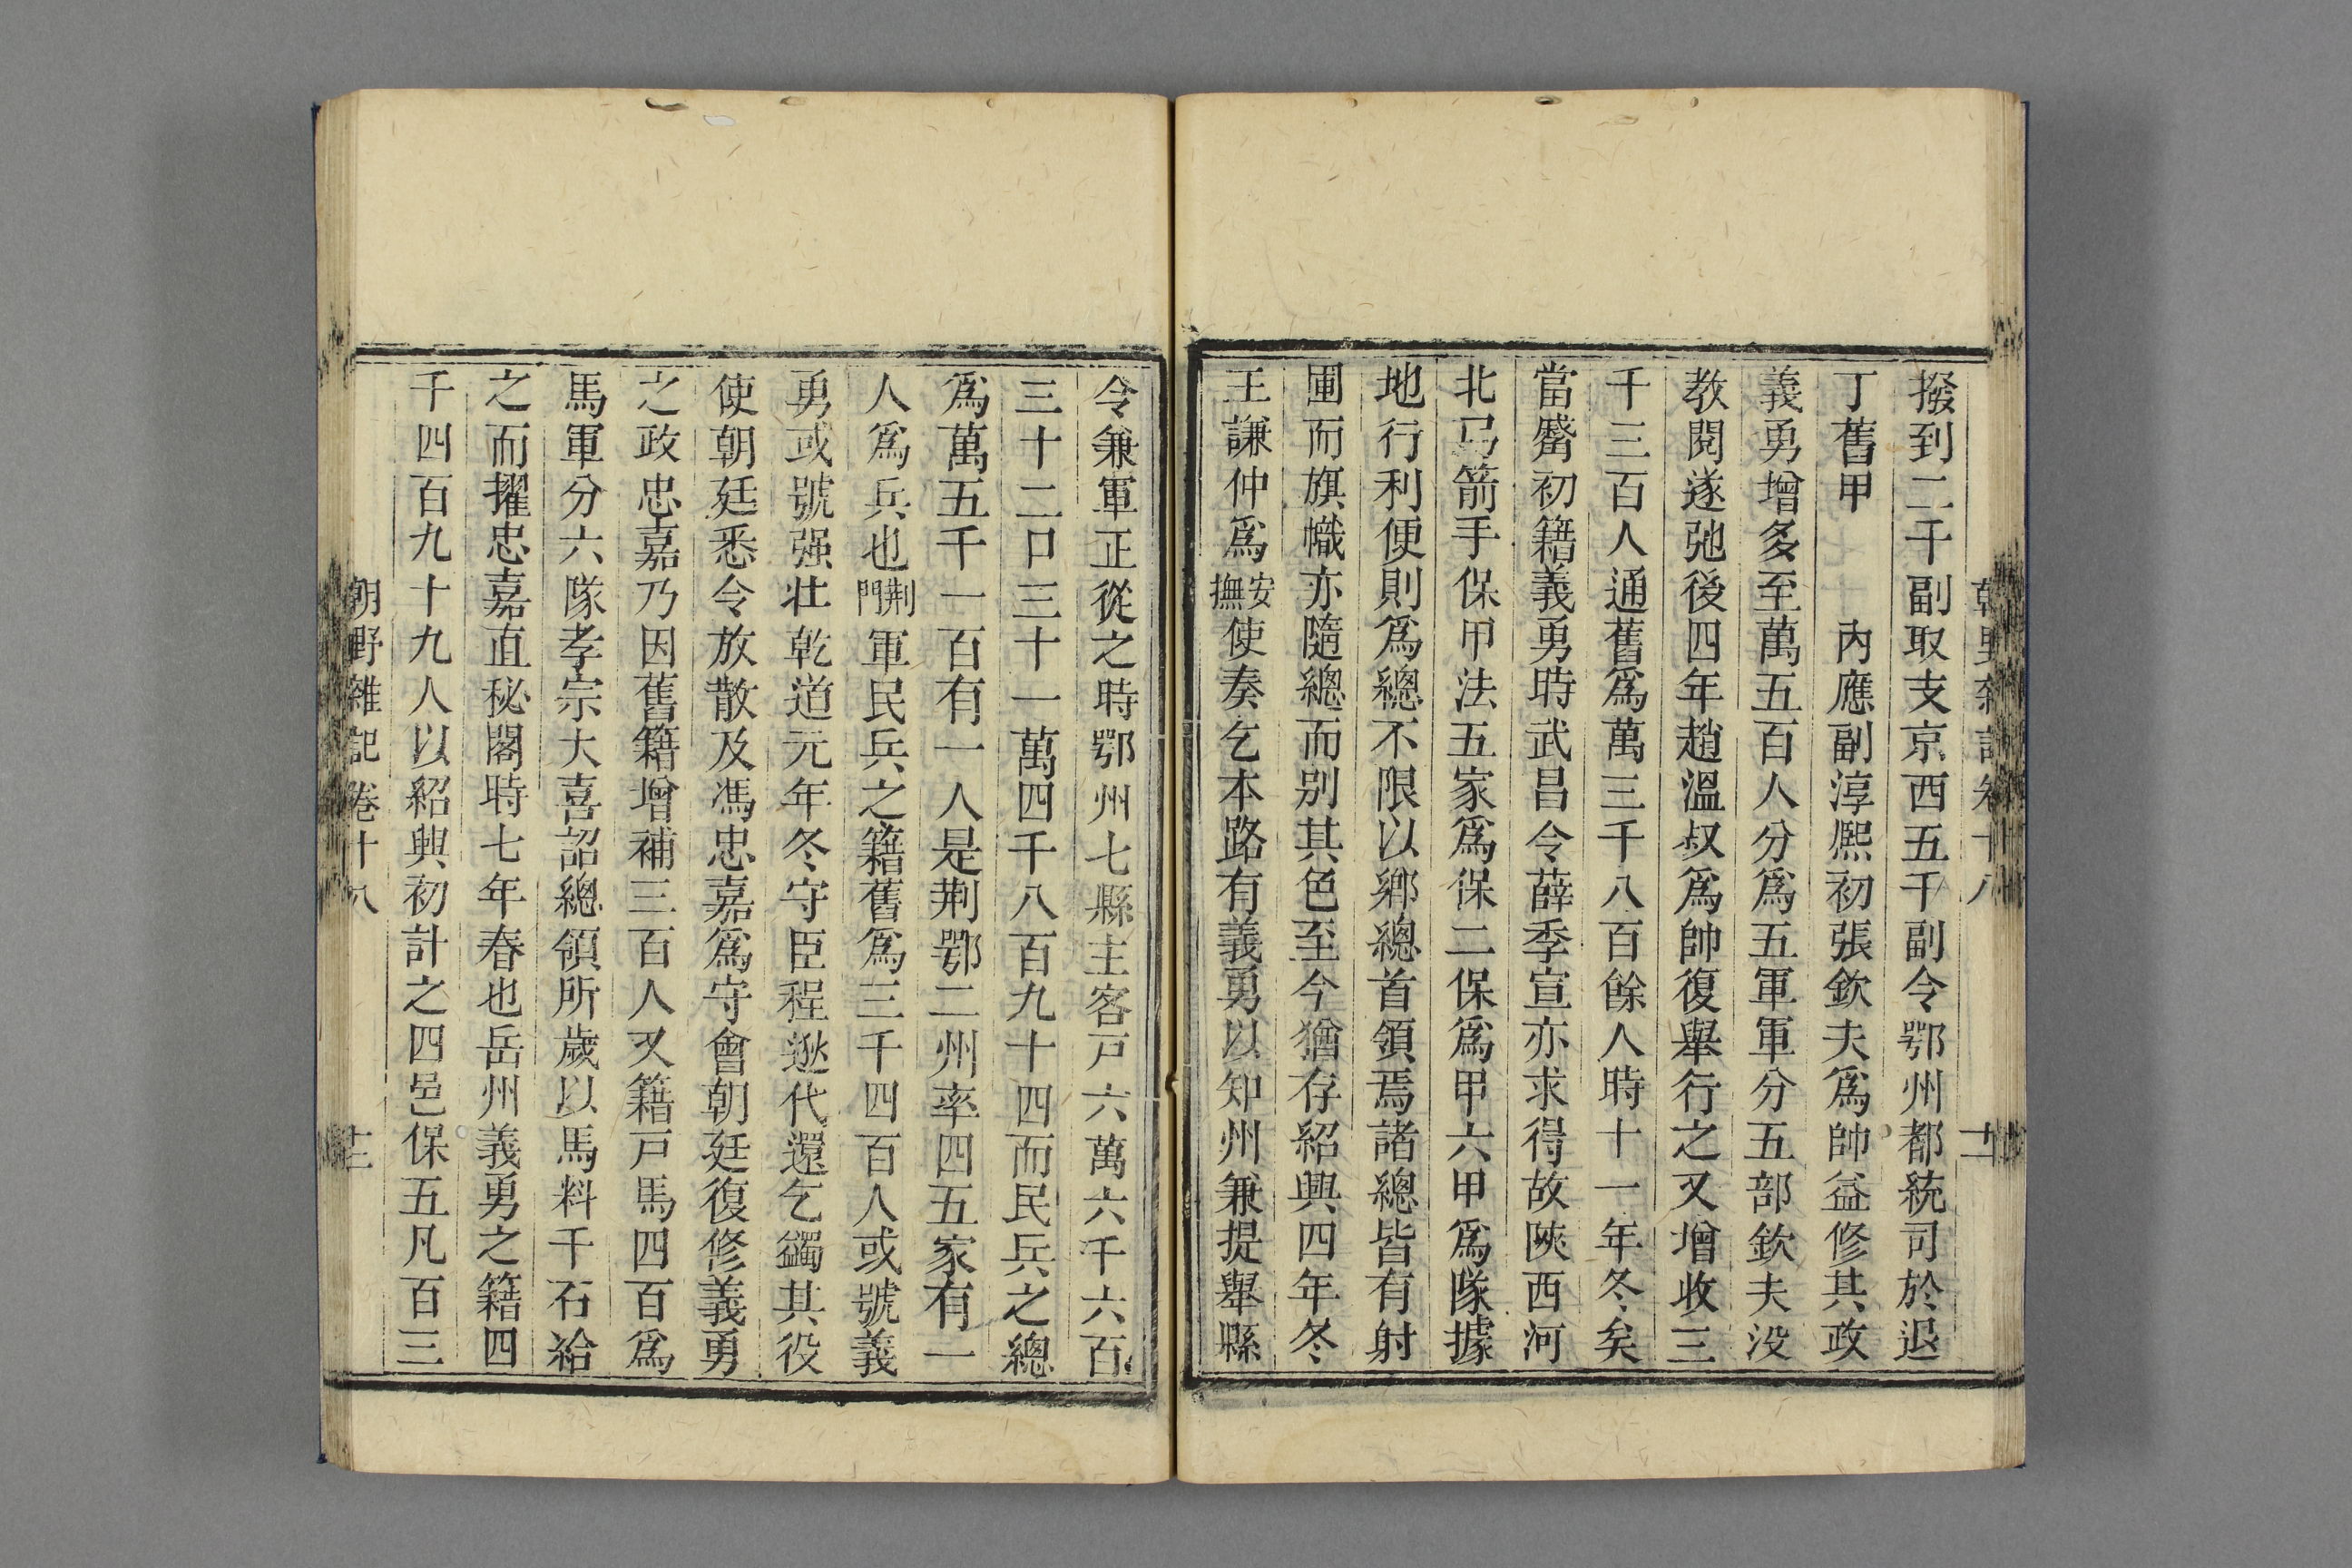 撥到二千副取支京西五千副令鄂州都統司於退
丁舊甲　　內應副淳熙初張欽夫爲帥益修其政
義勇增多至萬五百人分爲五軍軍分五部欽夫没
教閱遂弛後四年趙溫叔爲帥復舉行之又增收三
千三百人通舊爲萬三千八百餘人時十一年冬矣
當癣初籍義勇時武昌令薛季宣亦求得故陝西河
北弓箭手保甲法五家爲保二保爲甲六甲爲隊據
地行利便則爲總不限以鄉總首領焉諸總皆有射
圃而旗幟亦隨總而别其色至今猶存紹興四年冬
王謙仲爲安撫使奏乞本路有義勇以知州兼提舉縣
令兼軍正從之時鄂州七縣主客戸六萬六千六百
三十二口三十一萬四千八百九十四而民兵之總
爲萬五千一百有一人是荆鄂二州率四五家有一
人爲兵也荆門軍民兵之籍舊爲三千四百人或號義
勇或號强壯乾道元年冬守臣程逖代還乞蠲其役
使朝廷悉令放散及馮忠嘉爲守會朝廷復修義勇
之政忠嘉乃因舊籍增補三百人又籍戸馬四百爲
馬軍分六隊孝宗大喜詔總領所歲以馬料千石給
之而擢忠嘉直秘閣時七年春也岳州義勇之籍四
千四百九十九人以紹興初計之四邑保五凡百三
朝野雜記卷十八　十三